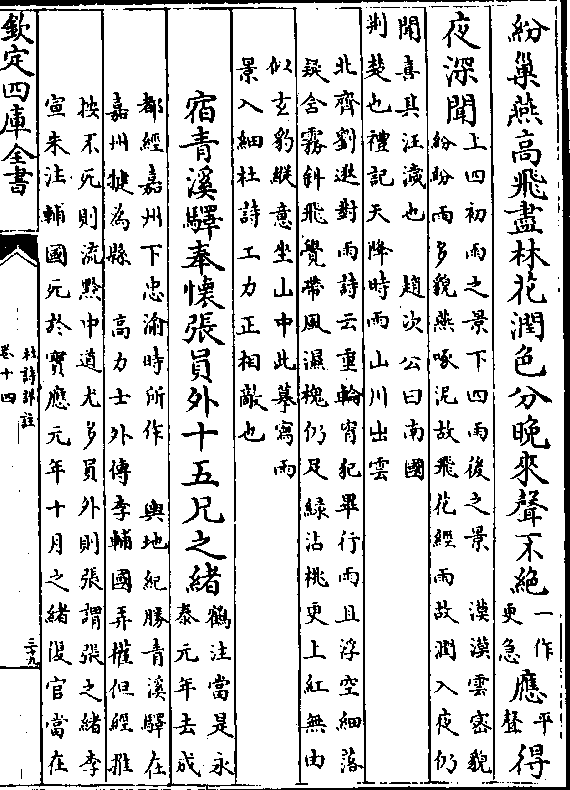 紛巢燕高飛盡林花潤色分晚來聲不絕
一作
更急
應
平
聲
得
夜深聞
上四初雨之景下四雨後之景　漠漠雲密貌
紛紛雨多貌燕啄泥故飛花經雨故潤入夜仍
聞喜其汪濊也　趙次公曰南國
荆楚也禮記天降時雨山川出雲
北齊劉逖對雨詩云重輪宵犯畢行雨旦浮空細落
疑含霧斜飛覺帶風濕槐仍足綠沾桃更上紅無由
似玄豹縱意坐山中此摹寫雨
景入細杜詩工力正相敵也
宿青溪驛奉懷張員外十五兄之緒
鶴注當是永
泰元年去成
都經嘉州下忠渝時所作　輿地紀勝青溪驛在
嘉州犍為縣　高力士外傳李輔國弄權但經推
按不死則流黔中道尤多員外則張謂張之緒李
宣朱注輔國死於寶應元年十月之緒復官當在
欽定四庫全書
杜詩詳註
卷十四
三十九